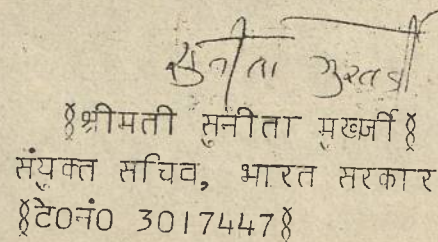 सुनीता मुखर्जी
§श्रीमती सुनीता मुखर्जी§
संयुक्त सचिव, भारत सरकार
§टे0नं0 3017447§